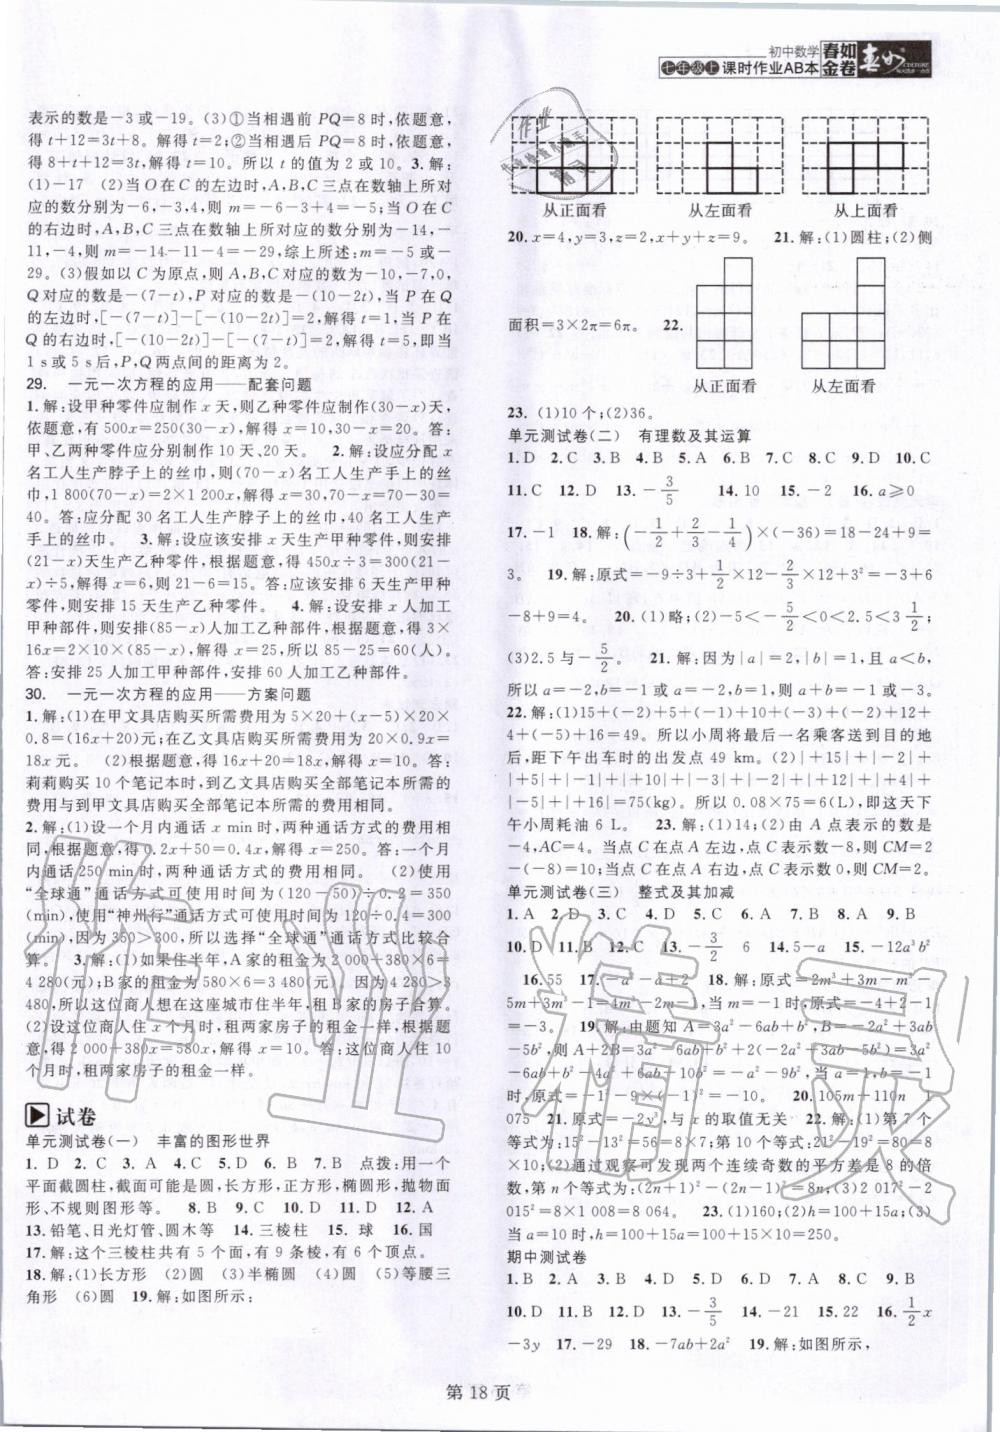 初中数学
七年级上 课时作业AB本
春如金卷
春如
表示的数是-3或-19。(3)①当相遇前PQ=8时,依题意,
得t+12=3t,解得t=2;②当相遇后PQ=8时,依题意,
得t+12+8=3t,解得t=10。所以t的值为2或10。 3.解:
(1)-17 (2)当O在C的左边时,A,B,C三点在数轴上所对
应的数分别为-6,-3,4,则m=-6-3+4=-5;当O在C
的右边时,A,B,C三点在数轴上所对应的数分别为-14,
-11,-4,则m=-14-11-4=-29,综上所述:m=-5或-
29。(3)假如以C为原点,则A,B,C对应的数为-10,-7,0,
Q对应的数是-(7-t),P对应的数是-(10-2t),当P在Q
的左边时,[-(7-t)]-[-(10-2t)]=2,解得t=1,当P在
Q的右边时,[-(10-2t)]-[-(7-t)]=2,解得t=5,即当
1 s或5 s后,P,Q两点间的距离为2。
29. 一元一次方程的应用——配套问题
1.解:设甲种零件应制作x天,则乙种零件应制作(30-x)天,
依题意,有500x=250(30-x),解得x=10,30-x=20。答:
甲、乙两种零件应分别制作10天、20天。 2.解:设应分配x
名工人生产脖子上的丝巾,则(70-x)名工人生产手上的丝
巾,1 800(70-x)=2×1 200x,解得x=30,70-x=70-30=
40。答:应分配30名工人生产脖子上的丝巾,40名工人生产
手上的丝巾。 3.解:设应该安排x天生产甲种零件,则安排
(21-x)天生产乙种零件,根据题意,得450x÷3=300(21-
x)÷5,解得x=6,21-6=15。答:应该安排6天生产甲种
零件,则安排15天生产乙种零件。 4.解:设安排x人加工
甲种部件,则安排(85-x)人加工乙种部件,根据题意,得3×
16x=2×10×(85-x),解得x=25,所以85-25=60(人)。
答:安排25人加工甲种部件,安排60人加工乙种部件。
30. 一元一次方程的应用——方案问题
1.解:(1)在甲文具店购买所需费用为5×20+(x-5)×20×
0.8=(16x+20)元;在乙文具店购买所需费用为20×0.9x=
18x元。 (2)根据题意,得16x+20=18x,解得x=10。答:
莉莉购买10个笔记本时,到乙文具店购买全部笔记本所需的
费用与到甲文具店购买全部笔记本所需的费用相同。
2.解:(1)设一个月内通话x min时,两种通话方式的费用相
同,根据题意,得0.2x+50=0.4x,解得x=250。答:一个月
内通话250 min时,两种通话方式的费用相同。 (2)使用
“全球通”通话方式可使用时间为(120-50)÷0.2=350
(min),使用“神州行”通话方式可使用时间为120÷0.4=300
(min),因为350>300,所以选择“全球通”通话方式比较合
算。 3.解:(1)如果住半年,A家的租金为2 000+380×6=
4 280(元);B家的租金为580×6=3 480(元) 因为4 280元>
3 480元,所以这位商人想在这座城市住半年,租B家的房子合算。
(2)设这位商人住x个月时,租两家房子的租金一样,根据题
意,得2 000+380x=580x,解得x=10。答:这位商人住10
个月时,租两家房子的租金一样。
试卷
单元测试卷(一) 丰富的图形世界
1. D 2. C 3. A 4. C 5. D 6. B 7. B 点拨:用一个
平面截圆柱,截面可能是圆,长方形,正方形,椭圆形,抛物面
形、不规则图形等。 8. B 9. C 10. B 11. D 12. A
13. 铅笔、日光灯管、圆木等 14. 三棱柱 15. 球 16. 国
17. 解:这个三棱柱共有5个面,有9条棱,有6个顶点。
18. 解:(1)长方形 (2)圆 (3)半椭圆 (4)圆 (5)等腰三
角形 (6)圆 19. 解:如图所示:
从正面看 从左面看 从上面看
20. x=4,y=3,z=2,x+y+z=9。 21. 解:(1)圆柱;(2)侧
面积=3×2π=6π。 22.
从正面看 从左面看
23. (1)10个;(2)36。
单元测试卷(二) 有理数及其运算
1. D 2. C 3. B 4. B 5. A 6. B 7. D 8. C 9. D 10. C
11. C 12. D 13. -3/5 14. 10 15. -2 16. a≥0
17. -1 18. 解:(-1/2+2/3-1/4)×(-36)=18-24+9=
3。 19. 解:原式=-9÷3+1/2×12-2/3×12+3²=-3+6
-8+9=4。 20. (1)略;(2)-5/2<0<2.5<3 1/2;
(3)2.5与-5/2。 21. 解:因为|a|=2,|b|=1,且a<b,
所以a=-2,b=1或a=-2,b=-1,则a+b=-1或-3。
22. 解:(1)15+(-2)+5+(-1)+10+(-3)+(-2)+12+
4+(-5)+16=49。所以小周将最后一名乘客送到目的地
后,距下午出车时的出发点49 km。(2)|+15|+|-2|+
|+5|+|-1|+|+10|+|-3|+|-2|+|+12|+|+4|+
|-5|+|+16|=75(kg)。所以0.08×75=6(L),即这天下
午小周耗油6 L。 23. 解:(1)14;(2)由A点表示的数是
-4,AC=4。当点C在点A左边,点C表示数-8,则CM=2
-(-8)=10;当点C在点A右边,点C表示数0,则CM=2。
单元测试卷(三) 整式及其加减
1. A 2. D 3. C 4. D 5. C 6. A 7. B 8. A 9. B
10. D 11. B 12. C 13. -3/2 6 14. 5-a 15. -12a³b²
16. 55 17. -a-a+2 18. 解:原式=2m²+3m-m²-
5m+3m²-1=4m²-2m-1,当m=-1时,原式=-4+2-1
=-3。 19. 解:由题知A=3a²-6ab+b²,B=-2a²+3ab
-5b²,则A+B=3a²-6ab+b²+(-2a²+3ab-5b²)=3a²
-6ab+b²-2a²+3ab-5b²=a²-3ab-4b²,当a=1,b=-1
20. 105m+110n 1
075 21. 原式=-2y³,与x的取值无关 22. 解:(1)第7个
×10×;(2)通过观察可发现两个连续奇数的平方差是8的倍
数,第n个等式为:(2n+1)²-(2n-1)²=8n;(3)2 017²-2
015²=8×1 008=8 064。 23. (1)160;(2)h=100+15a;(3)
当a=10时,h=100+15a=100+15×10=250。
期中测试卷
1. B 2. A 3. D 4. D 5. A 6. D 7. C 8. C 9. B
10. D 11. B 12. B 13. -3/5 14. -21 15. 22 16. 1/2x
-3y 17. -29 18. -7ab+2a² 19. 解:如图所示,
第18页
作业精灵